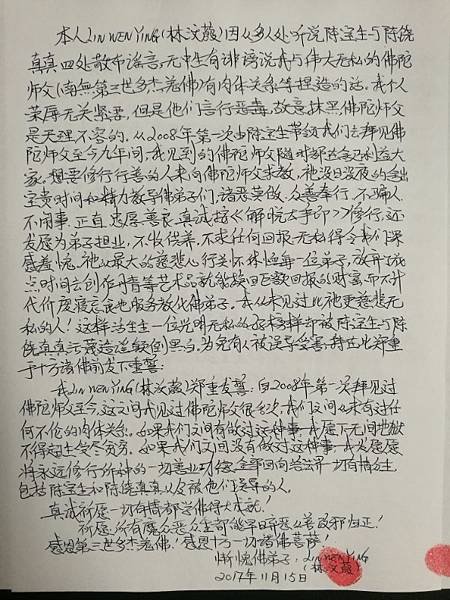 本人LIN WEN YING(林文薐)因从多人处听说陈宝生与陈
真真四处散布谣言,无中生有诽谤说我与伟大无私的佛陀
师父(南無第三世多杰羌佛)有肉体关系等捏造的话。我个人
荣辱无关紧要,但是他们言行恶毒,故意抹黑佛陀师父
是天理不容的。从2008年第一次由陈宝生带领我们去拜见佛
陀师父至今九年间,我见到的佛陀师父随时都是利益大
家,想要修行行善的人来向佛陀师父求教,祂没日没夜的
宝贵时间和精力教导佛弟子们,诸恶莫做,众善奉行,不骗人
不闹事,正直,忠厚善良,真诚按《解脱大手印》修行,还
发愿为弟子担业,不收供养,不求任何回报,无私得令我们深
感羞愧。祂以最大的慈悲心行关怀
点时间去创作
代价废寝忘食地服务教化佛弟子。我从未见过比祂更慈悲无
私的人!这样活生生一位光明无私的 却被陈宝生与陈
真真 颠倒黑白,为免有人被误导受害,特在此郑重
于十方诸佛前发下重誓:
我LIN WEN YING(林文薐)郑重发誓:自2008年第一次拜见过
佛陀师父至今,这之间我见过佛陀师父很多次,我们之间从未有过任
何不伦的肉体关系。如果我们之间有做过这种事,我堕下无间地狱
不得超生受尽苦务。如果我们之间没有做过这种事,我发愿
将永远修行所种的一切善业功德,全部回向法界一切有情众生
包括陈宝生和陈 真真以及被他们误导的人。
真诚祈愿一切有情都学佛得大成就!
祈愿所有魔众恶众生都能早日弃恶从善改邪归正!
感恩第三世多杰羌佛!感恩十方一切诸佛菩萨!
惭愧佛弟子:LIN WEN YING
(林文薐)
2017年11月15日